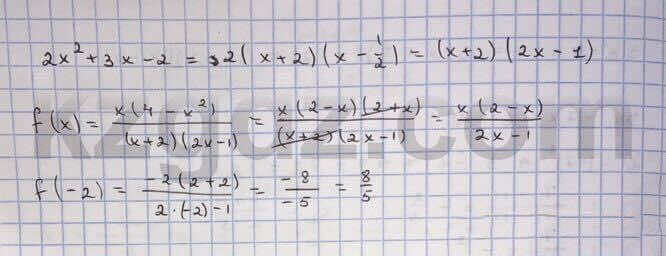 2x² + 3x - 2 = 2(x+2)(x - 1/2) = (x+2)(2x - 1)
f(x) = x(4 - x²)/(x+2)(2x-1) = x(2-x)(2+x)/(x+2)(2x-1) = x(2-x)/2x-1
f(-2) = -2(2+2)/2·(-2)-1 = -8/-5 = 8/5
kzgdz.com